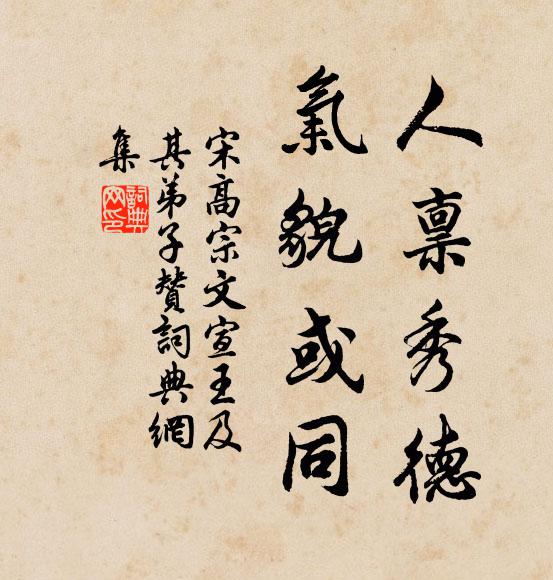 人稟秀德
氣貌或同
宋高宗文宣王及
其弟子賛詞典網
集
詞典網印